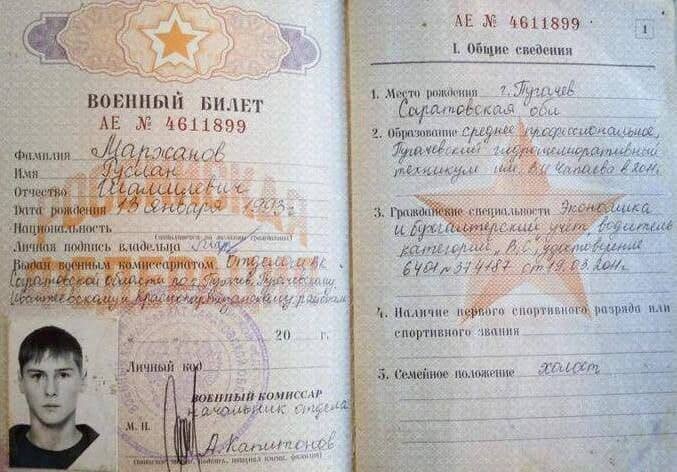 ВОЕННЫЙ БИЛЕТ
АЕ № 4611899
Фамилия Маржанов
Имя Руслан
Отчество Шамилевич
Дата рождения 13 января 1993г.
Национальность
(заполняется по желанию гражданина)
Личная подпись владельца
Выдан военным комиссариатом Отделом ВК
Саратовской области по г. Пугачев, Пугачевскому,
Ивантеевскому и Краснопартизанскому районам
20 г.
Личный код
ВОЕННЫЙ КОМИССАР
Начальник отдела
М. П.
А. Капитонов
АЕ № 4611899
1
I. Общие сведения
1. Место рождения г. Пугачев
Саратовская обл
2. Образование среднее профессиональное,
Пугачевский гидромелиоративный
техникум им. В.И Чапаева в 2011г
3. Гражданские специальности Экономика
и бухгалтерский учет, водитель
категории „В,С", удостовление
6401 № 374187 от 19.03.2011г
4. Наличие первого спортивного разряда или
спортивного звания
5. Семейное положение холост